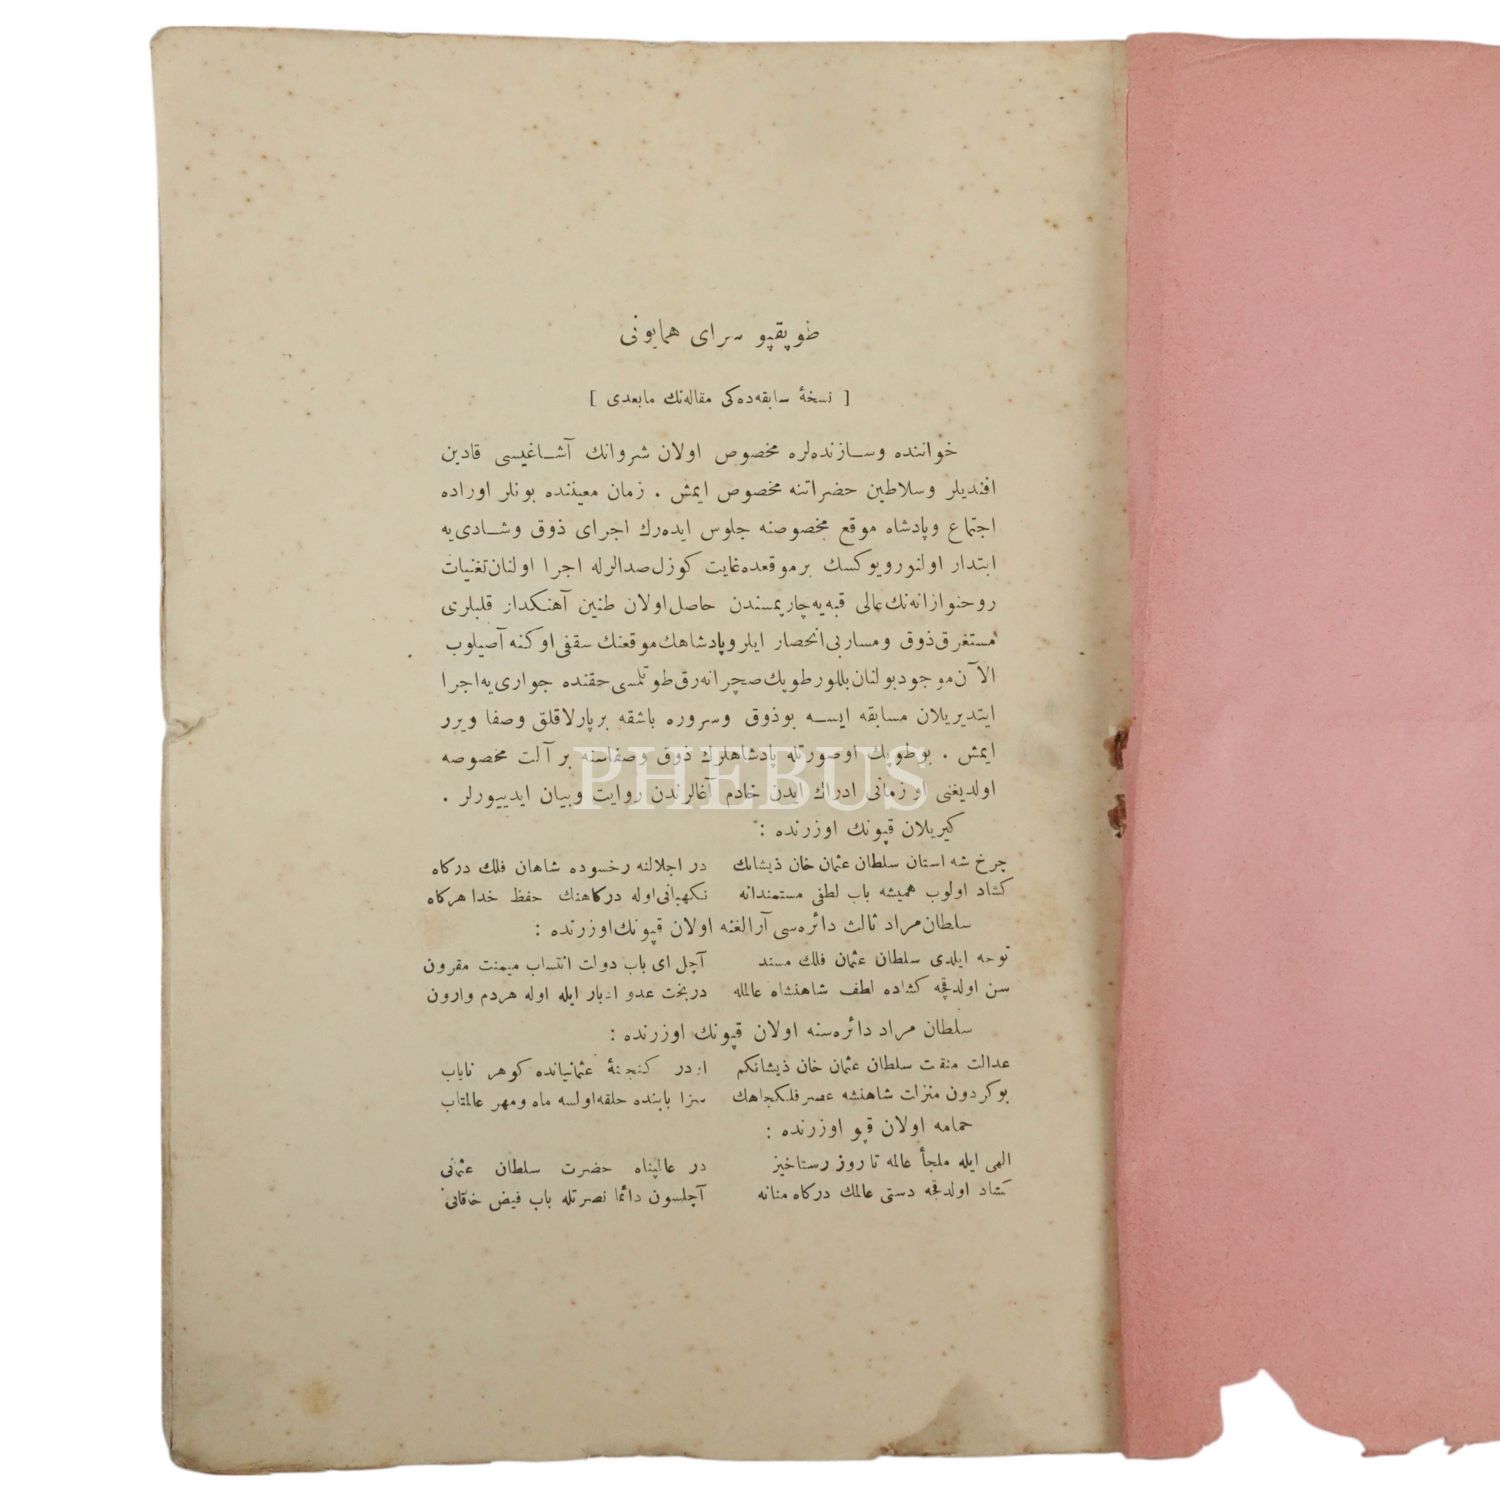 طوپقپو سرای همایونی
[ نسخهٔ سابقه‌ده‌کی مقاله‌نك مابعدی ]
خواننده وسازنده‌لره مخصوص اولان شروانك آشاغیسی قادین
افندیلر وسلاطین حضراتنه مخصوص ایمش . زمان معیننده بونلر اوراده
اجتماع وپادشاه موقع مخصوصنه جلوس ایده‌رك اجرای ذوق وشادی‌یه
ابتدار اولنورویوكسك برموقعده‌غایت كوزل‌صدالرله اجرا اولنان‌تغنیات
روحنوازانه‌نك‌عالی قبه‌یه‌چارپمسندن حاصل‌اولان طنین آهنكدار قلبلری
مستغرق‌ذوق ومسار بی‌انحصار ایلروپادشاهك‌موقعنك سقفی‌اوكنه آصیلوب
الآن‌موجودبولنان‌بللورطوپك‌صچرانه‌رق‌طوتلمسی‌حقنده جواری‌یه‌اجرا
ایتدیریلان مسابقه ایسه بوذوق وسروره باشقه برپارلاقلق وصفا ویرر
ایمش . بوطوپك اوصورتله پادشاهلرك ذوق وصفاسنه بر آلت مخصوصه
اولدیغنی او زمانی ادراك ایدن خادم آغالرندن روایت وبیان ایدییورلر .
كیریلان قپونك اوزرنده :
چرخ شه استان سلطان عثمان خان ذیشانك در اجلالنه رخسوده شاهان فلك دركاه
كشاد اولوب همیشه باب لطفی مستمندانه نكهبانی‌اوله دركاهنك حفظ خدا هركاه
سلطان‌مراد ثالث دائره‌سی آرالغنه اولان قپونك‌اوزرنده :
توجه ایلدی سلطان عثمان فلك مسند آچل ای باب دولت انتساب میمنت مقرون
سن اولدقجه كشاده لطف شاهنشاه عالمله دربخت عدو ادبار ایله اوله هردم وارون
سلطان مراد دائره‌سنه اولان قپونك اوزرنده :
عدالت منقبت سلطان عثمان خان ذیشانكم ایدر كنجنهٔ عثمانیانده كوهر نایاب
بوكردون منزلت شاهنشه عصر فلكجاهك سزا بابنده حلقه‌اولسه ماه ومهر عالمتاب
حمامه اولان قپو اوزرنده :
الهی ایله ملجأ عالمه تا روز رستاخیز در عالمپناه حضرت سلطان عثمانی
كشاد اولدقجه دستی عالمك دركاه منانه آچلسون دائما نصرتله باب فیض خاقانی
PHEBUS